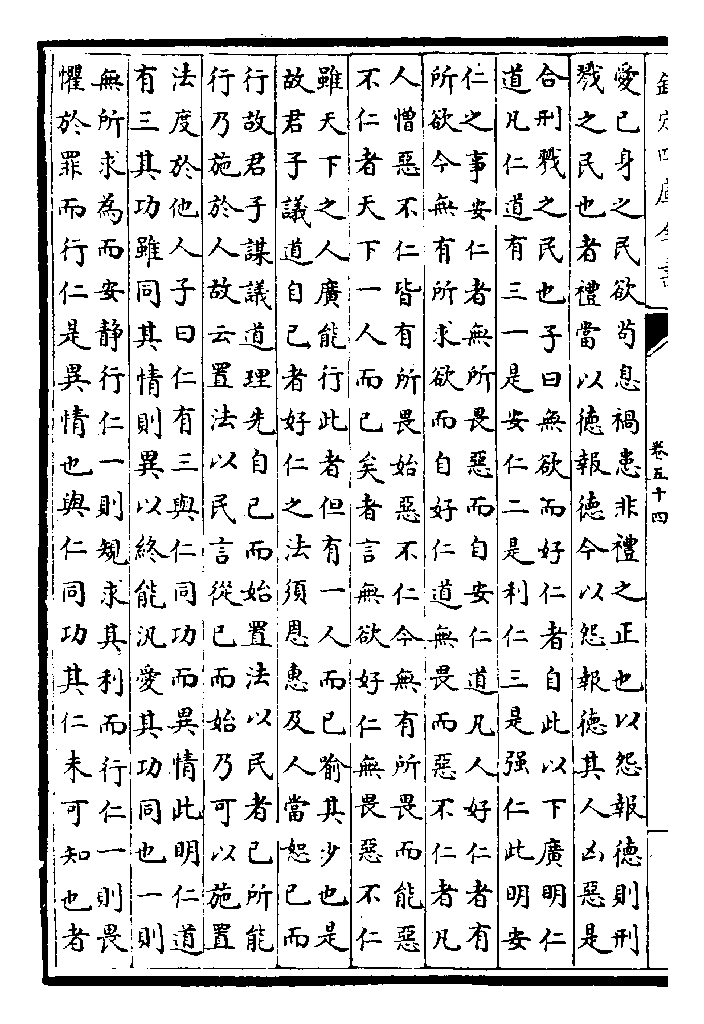 欽定四庫全書
卷五十四
愛已身之民欲苟息禍患非禮之正也以怨報德則刑
戮之民也者禮當以德報德今以怨報德其人凶惡是
合刑戮之民也子曰無欲而好仁者自此以下廣明仁
道凡仁道有三一是安仁二是利仁三是强仁此明安
仁之事安仁者無所畏惡而自安仁道凡人好仁者有
所欲今無有所求欲而自好仁道無畏而惡不仁者凡
人憎惡不仁皆有所畏始惡不仁今無有所畏而能惡
不仁者天下一人而已矣者言無欲好仁無畏惡不仁
雖天下之人廣能行此者但有一人而已喻其少也是
故君子議道自己者好仁之法須恩惠及人當恕已而
行故君子謀議道理先自已而始置法以民者已所能
行乃施於人故云置法以民言從已而始乃可以施置
法度於他人子曰仁有三與仁同功而異情此明仁道
有三其功雖同其情則異以終能汎愛其功同也一則
無所求為而安静行仁一則規求其利而行仁一則畏
懼於罪而行仁是異情也與仁同功其仁未可知也者